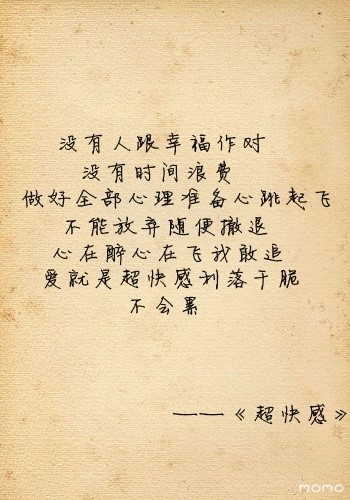 没有人跟幸福作对
没有时间浪费
做好全部心理准备心跳起飞
不能放弃随便撤退
心在醉心在飞我敢追
爱就是超快感利落干脆
不会累
——《超快感》
momo